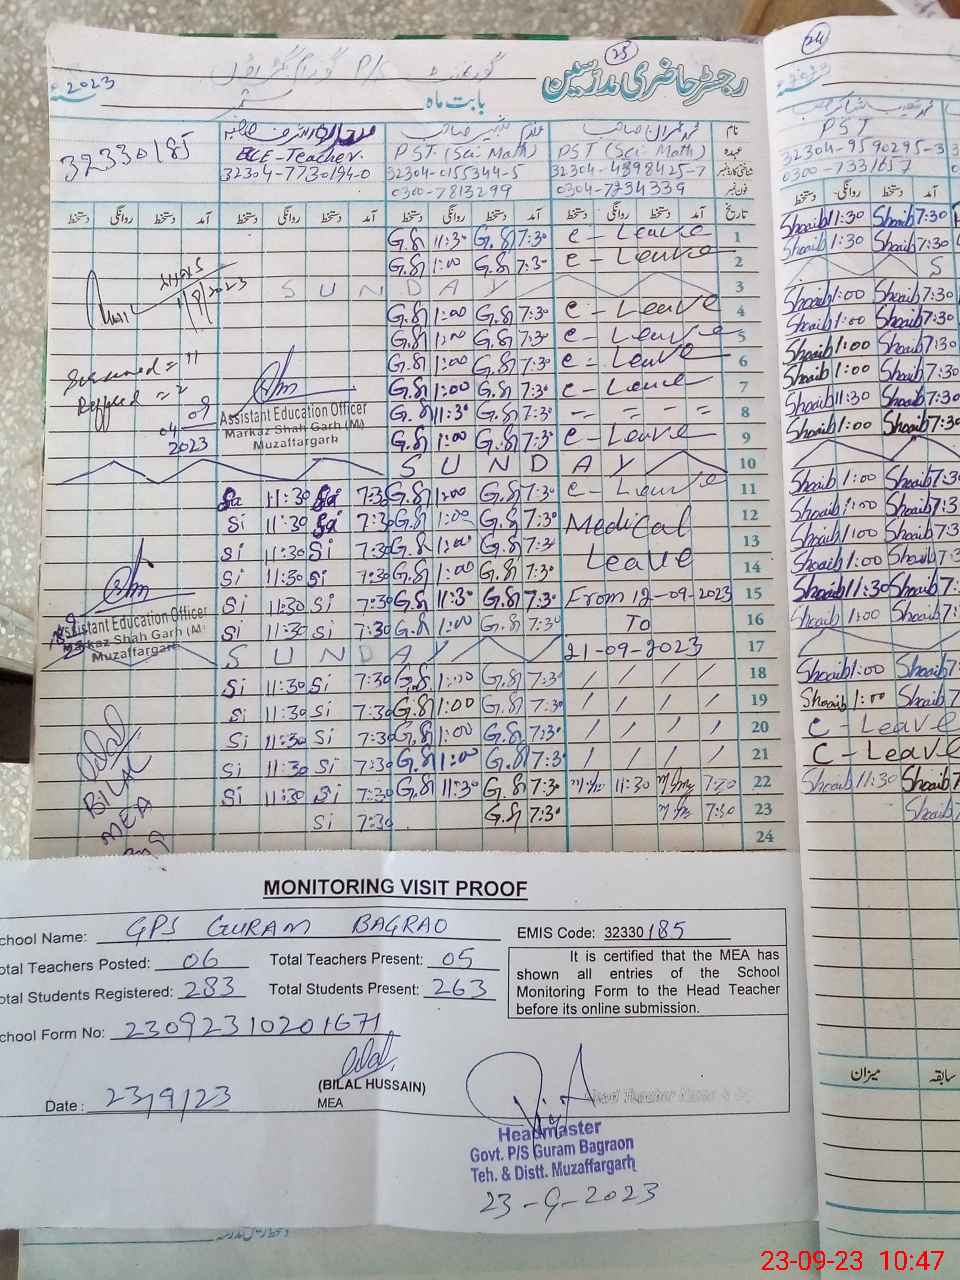 2023
گورنمنٹ P/S گورام بگراؤں
25
رجسٹر حاضری مدرسین
بابت ماہ ستمبر
24
32330185
نام
عہدہ
ECE-Teacher.
PST (Sci Math)
PST (Sci Math)
PST
شناختی کارڈ نمبر
32304-7730194-0
32304-0155344-5
32304-4398425-7
32304-9590295-3
فون نمبر
0300-7813299
0304-7734339
0300-7331657
دستخط روانگی دستخط آمد دستخط روانگی دستخط آمد دستخط روانگی دستخط آمد تاریخ
دستخط روانگی دستخط آمد
G.S 11:30 G.S 7:30 C - Leave 1 Shoaib 11:30 Shoaib 7:30
G.S 1:00 G.S 7:30 C - Leave 2 Shoaib 1:30 Shoaib 7:30
SUNDAY 3 S
G.S 1:00 G.S 7:30 C - Leave 4 Shoaib 1:00 Shoaib 7:30
G.S 1:00 G.S 7:30 C - Leave 5 Shoaib 1:00 Shoaib 7:30
G.S 1:00 G.S 7:30 C - Leave 6 Shoaib 1:00 Shoaib 7:30
G.S 1:00 G.S 7:30 C - Leave 7 Shoaib 1:00 Shoaib 7:30
G.S 11:30 G.S 7:30 8 Shoaib 11:30 Shoaib 7:30
G.S 1:00 G.S 7:30 C - Leave 9 Shoaib 1:00 Shoaib 7:30
SUNDAY 10
11:30 7:30 G.S 1:00 G.S 7:30 C - Leave 11 Shoaib 1:00 Shoaib 7:30
Si 11:30 7:30 G.S 1:00 G.S 7:30 Medical 12 Shoaib 1:00 Shoaib 7:3
Si 11:30 Si 7:30 G.S 1:00 G.S 7:30 Leave 13 Shoaib 1:00 Shoaib 7:3
Si 11:30 Si 7:30 G.S 1:00 G.S 7:30 14 Shoaib 1:00 Shoaib 7:3
Si 11:30 Si 7:30 G.S 11:30 G.S 7:30 From 12-09-2023 15 Shoaib 11:30 Shoaib 7:
Si 11:30 Si 7:30 G.S 1:00 G.S 7:30 To 16 Shoaib 1:00 Shoaib 7:
SUNDAY 21-09-2023 17
Si 11:30 Si 7:30 G.S 1:00 G.S 7:30 / / / / 18 Shoaib 1:00 Shoaib 7:
Si 11:30 Si 7:30 G.S 1:00 G.S 7:30 / / / / 19 Shoaib 1:00 Shoaib 7:
Si 11:30 Si 7:30 G.S 1:00 G.S 7:30 / / / / 20 C - Leave
Si 11:30 Si 7:30 G.S 1:00 G.S 7:30 / / / / 21 C - Leave
Si 11:30 Si 7:30 G.S 11:30 G.S 7:30 11:30 7:30 22 Shoaib 11:30 Shoaib 7
Si 7:30 G.S 7:30 7:30 23 Shoaib
24
1/9/2023
= 11
= 2
04 09
2023
Assistant Education Officer
Markaz Shah Garh (M)
Muzaffargarh
Assistant Education Officer
Markaz Shah Garh (M)
Muzaffargarh
Bilal
BILAL
MEA
MONITORING VISIT PROOF
chool Name: GPS GURAM BAGRAO
EMIS Code: 32330185
otal Teachers Posted: 06 Total Teachers Present: 05
otal Students Registered: 283 Total Students Present: 263
It is certified that the MEA has
shown all entries of the School
Monitoring Form to the Head Teacher
before its online submission.
chool Form No: 23092310201671
(BILAL HUSSAIN)
MEA
Date: 23/9/23
Head Teacher Name &
Headmaster
Govt. P/S Guram Bagraon
Teh. & Distt. Muzaffargarh
23-9-2023
میزان سابقہ
23-09-23 10:47